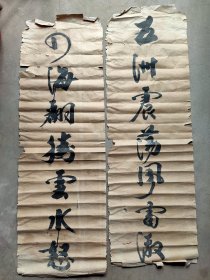 五洲震荡风雷激
四海翻腾云水怒